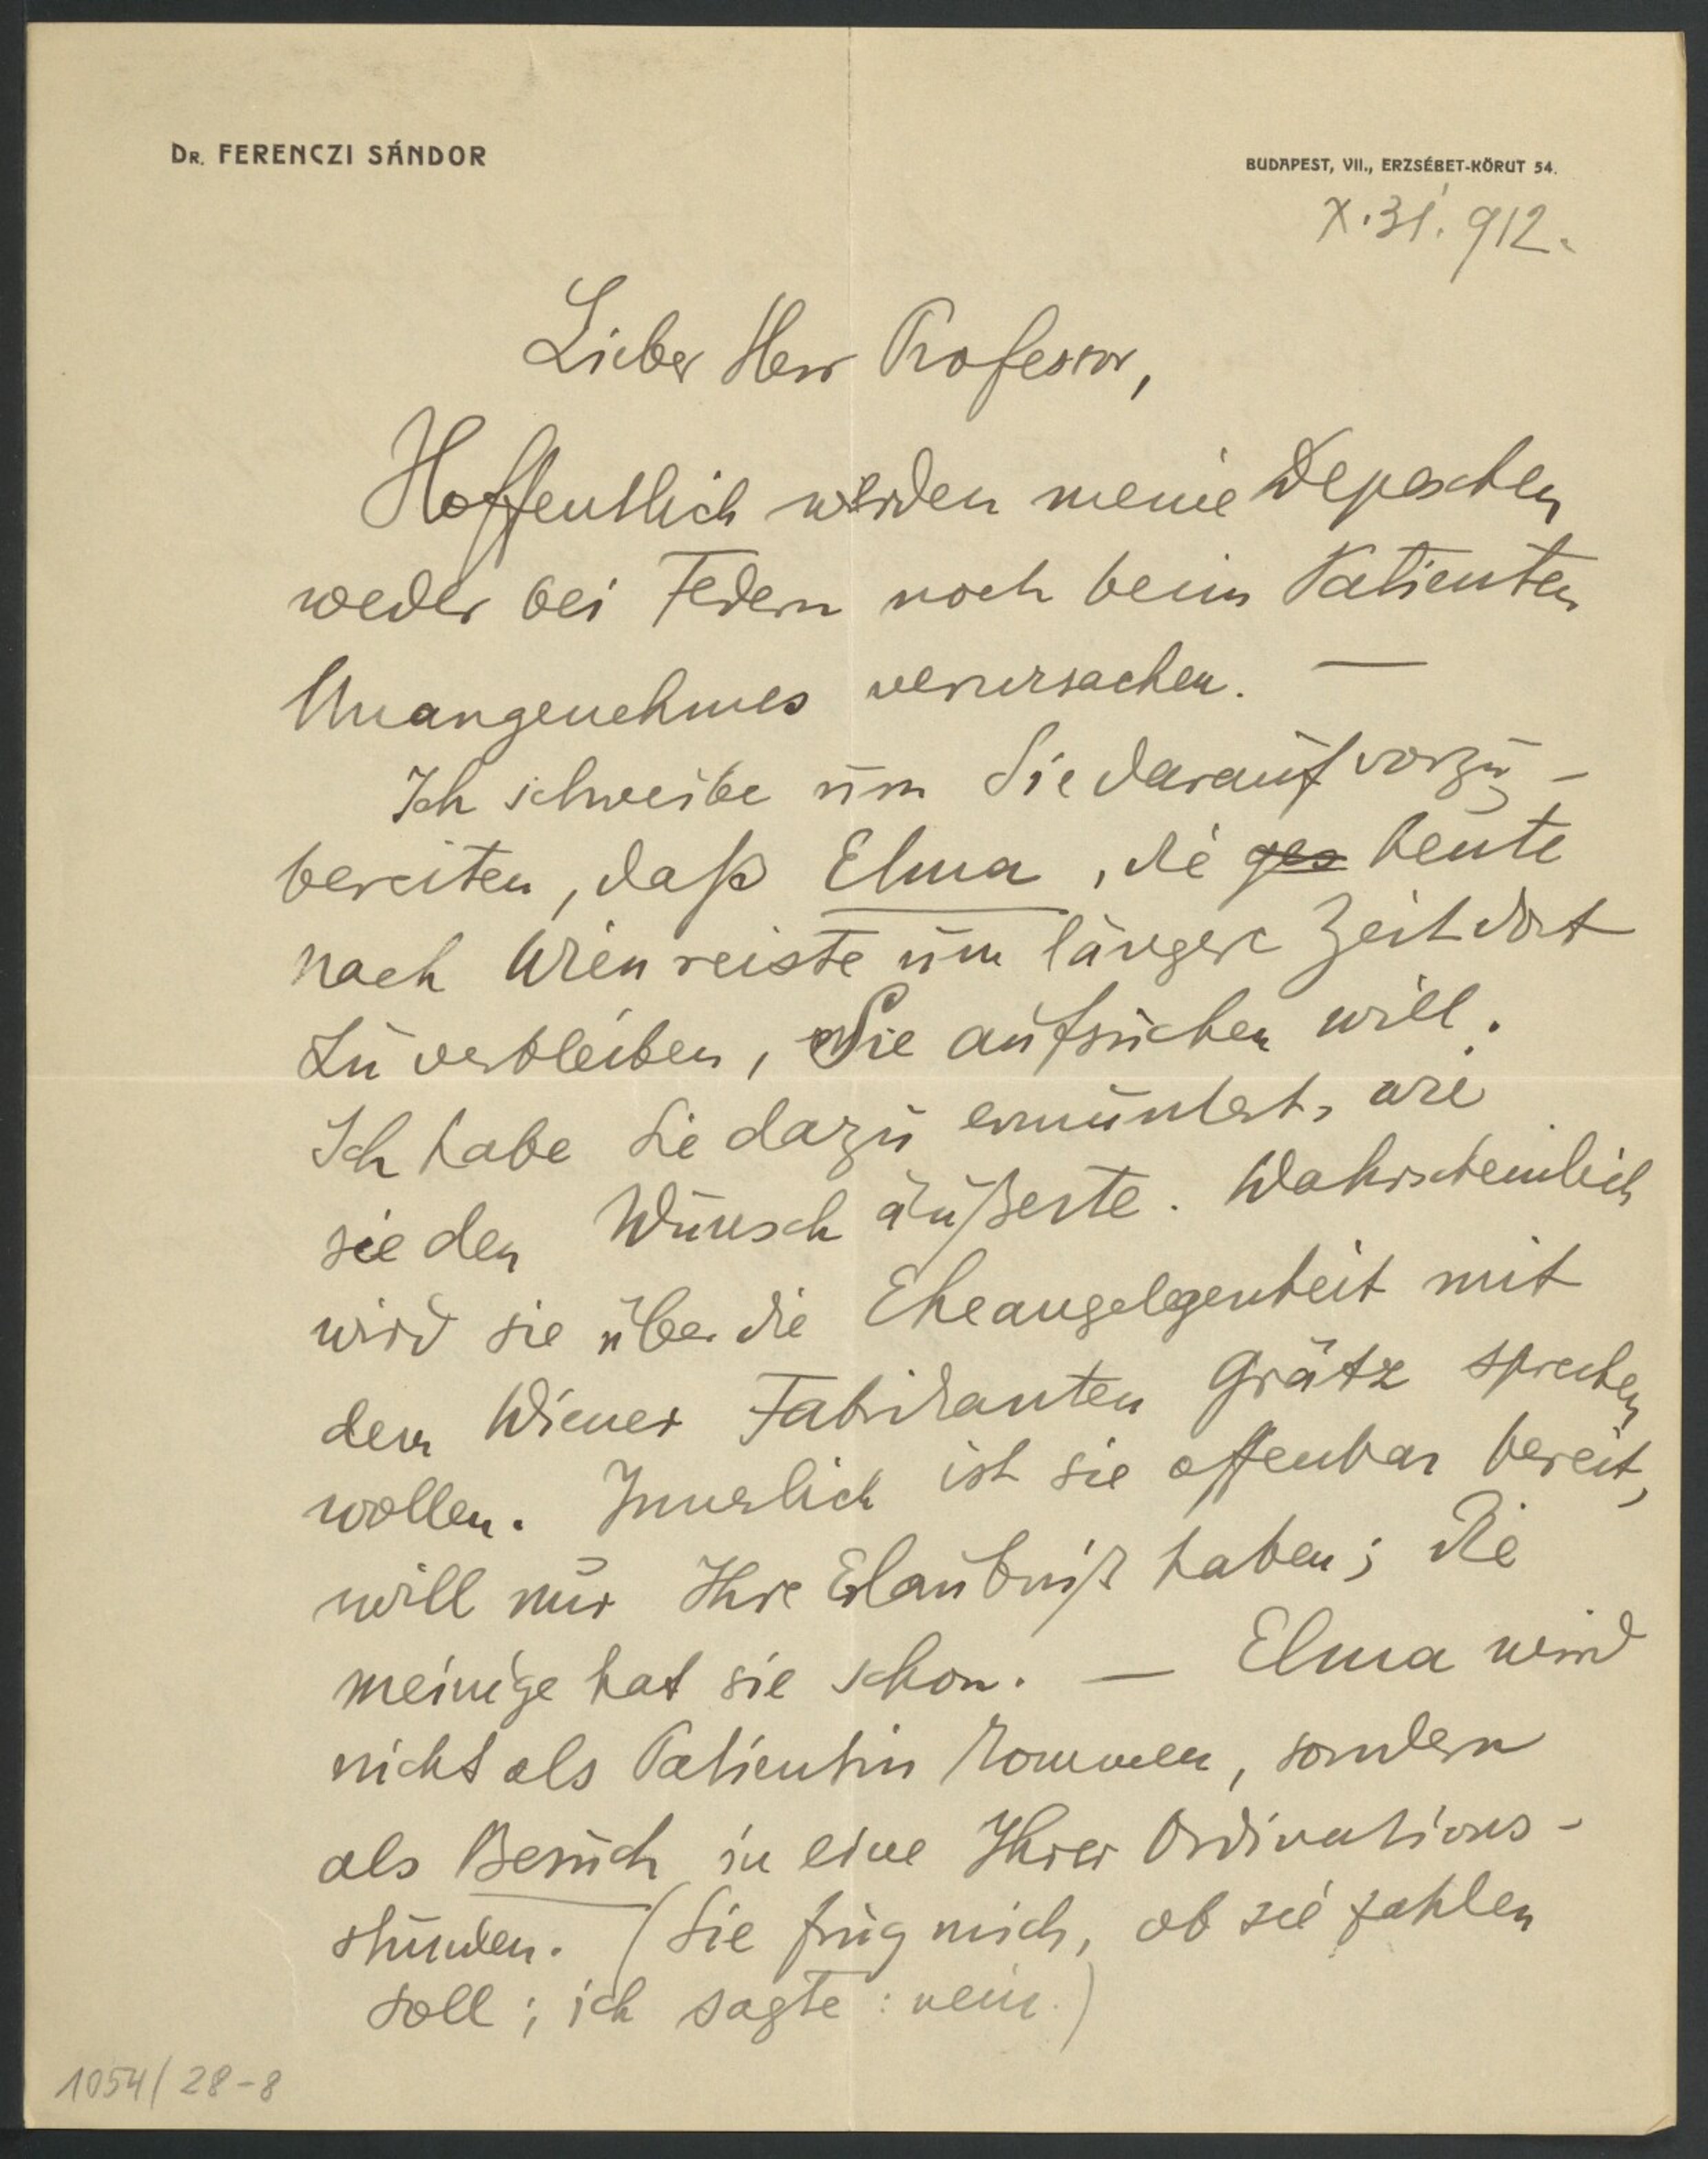 Dr. FERENCZI SÁNDOR
BUDAPEST, VII., ERZSÉBET-KÖRUT 54.
X.31. 912.
Lieber Herr Professor,
Hoffentlich werden meine Depeschen
weder bei Federn noch beim Patienten
Unangenehmes verursachen. —
Ich schreibe um Sie darauf vorzu-
bereiten, daß Elma, die ges heute
nach Wien reiste um längere Zeit dort
zu verbleiben, Sie aufsuchen will.
Ich habe sie dazu ermuntert, wie
sie den Wunsch äußerte. Wahrscheinlich
wird sie über die Eheangelegenheit mit
dem Wiener Fabrikanten Grätz sprechen
wollen. Innerlich ist sie offenbar bereit,
will nur Ihre Erlaubniß haben; die
meinige hat sie schon. — Elma wird
nicht als Patientin kommen, sondern
als Besuch in eine Ihrer Ordinations-
stunden. (Sie frug mich, ob sie zahlen
soll; ich sagte: nein.)
1054/28-8